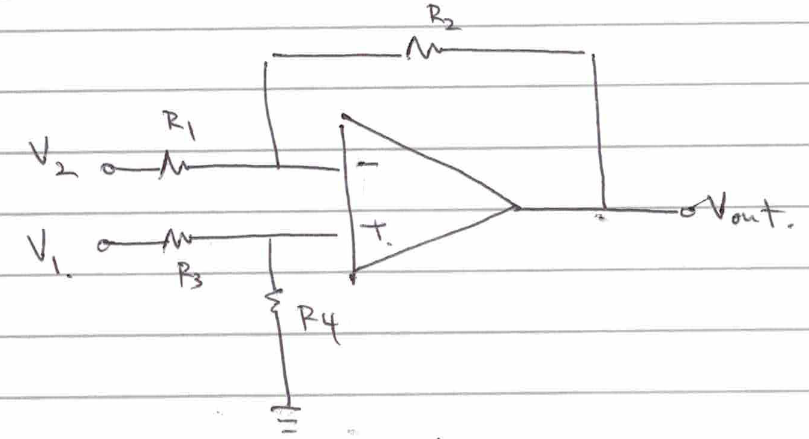 R2
R1
V2
-
+.
Vout.
V1.
R3
R4